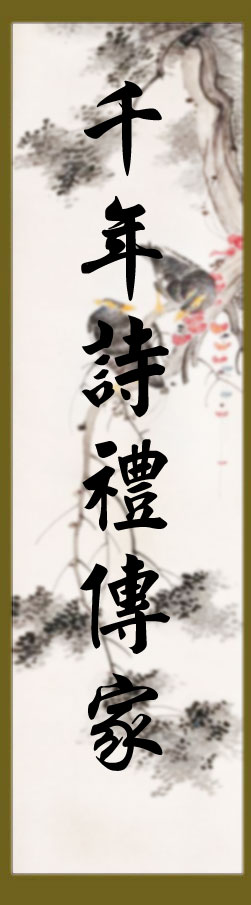 千年詩禮傳家